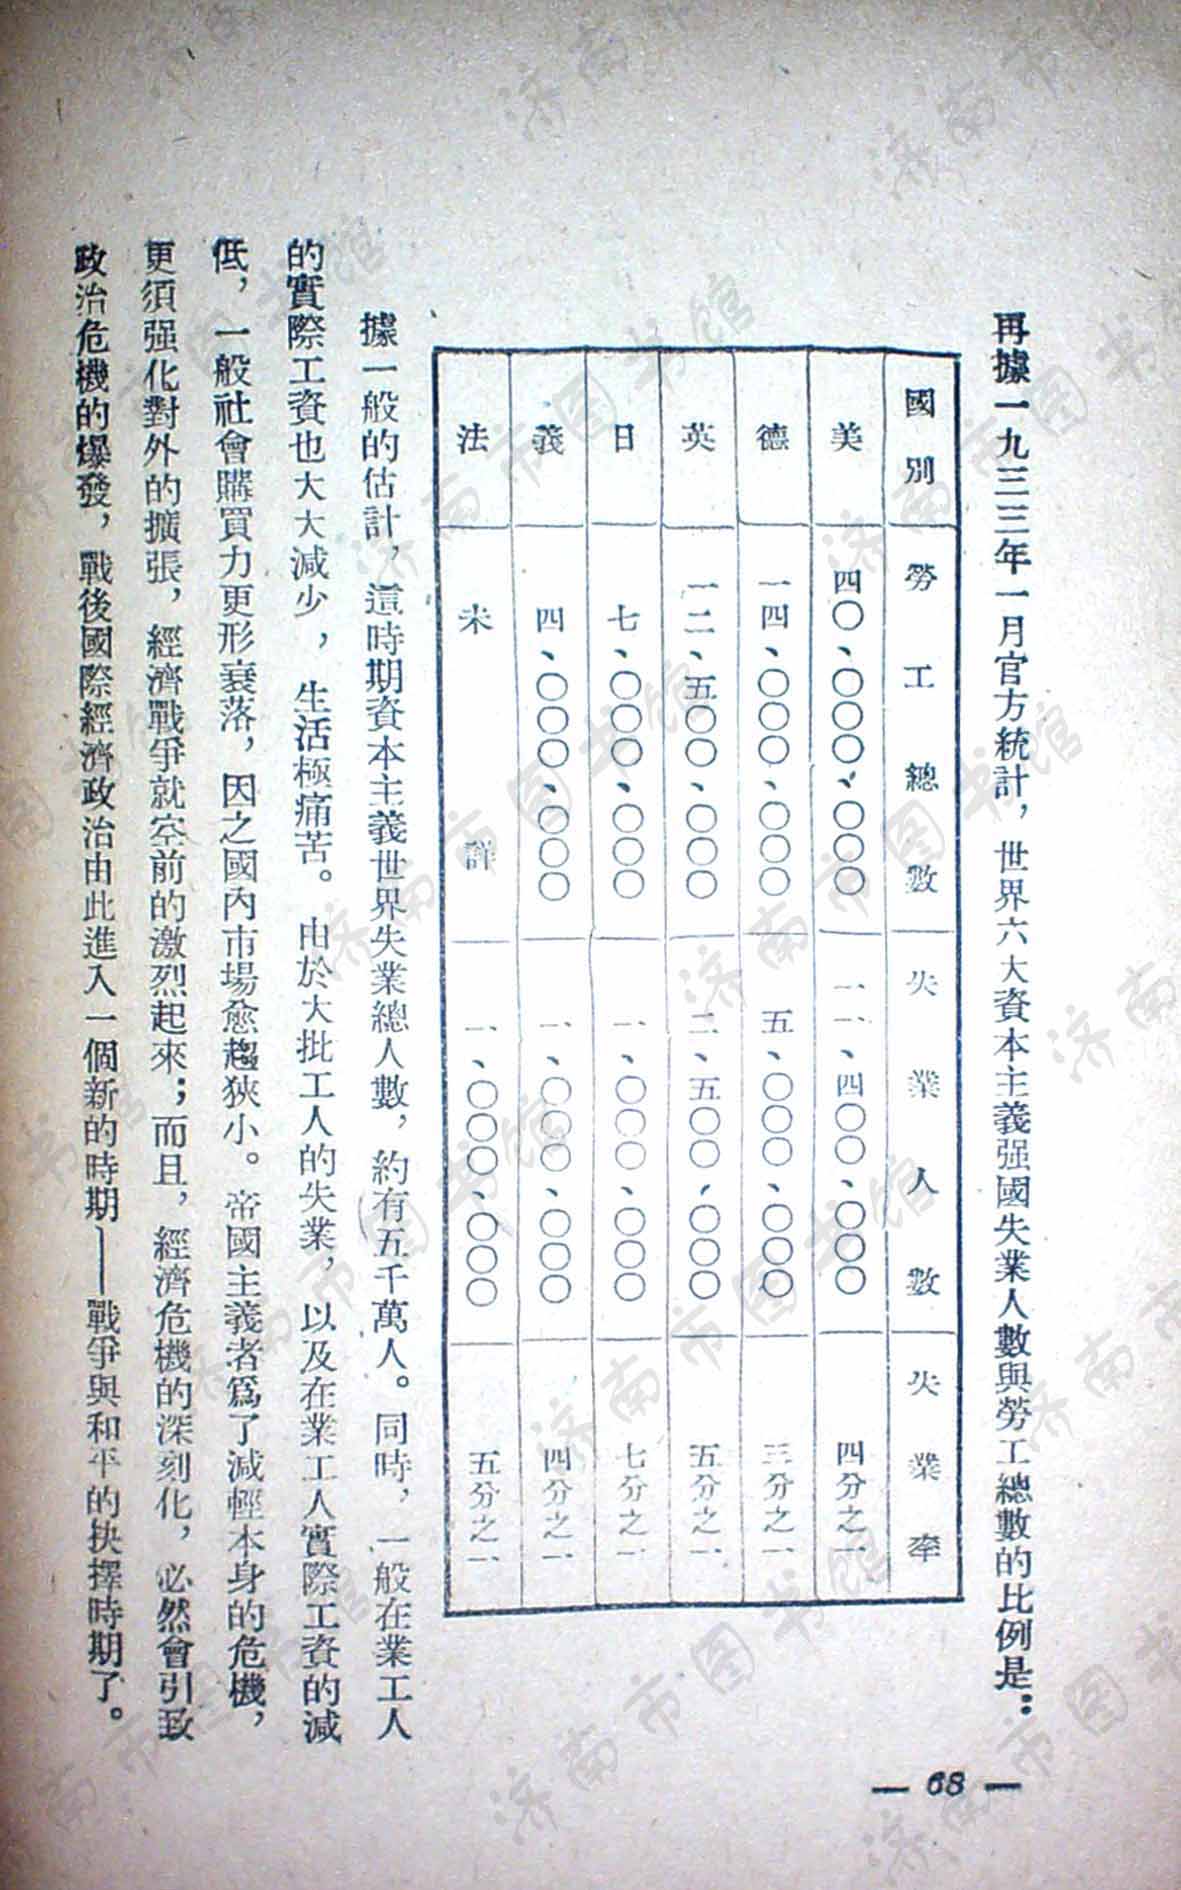 再據一九三三年一月官方統計，世界六大資本主義强國失業人數與勞工總數的比例是：
國別 勞工總數 失業人數 失業率
美 四〇、〇〇〇、〇〇〇 一一、四〇〇、〇〇〇 四分之一
德 一四、〇〇〇、〇〇〇 五、〇〇〇、〇〇〇 三分之一
英 一二、五〇〇、〇〇〇 二、五〇〇、〇〇〇 五分之一
日 七、〇〇〇、〇〇〇 一、〇〇〇、〇〇〇 七分之一
義 四、〇〇〇、〇〇〇 一、〇〇〇、〇〇〇 四分之一
法 未詳 一、〇〇〇、〇〇〇 五分之一
據一般的估計，這時期資本主義世界失業總人數，約有五千萬人。同時，一般在業工人
的實際工資也大大減少，生活極痛苦。由於大批工人的失業，以及在業工人實際工資的減
低，一般社會購買力更形衰落，因之國內市場愈趨狹小。帝國主義者爲了減輕本身的危機，
更須强化對外的擴張，經濟戰爭就空前的激烈起來；而且，經濟危機的深刻化，必然會引致
政治危機的爆發，戰後國際經濟政治由此進入一個新的時期——戰爭與和平的抉擇時期了。
— 68 —
济南市图书馆